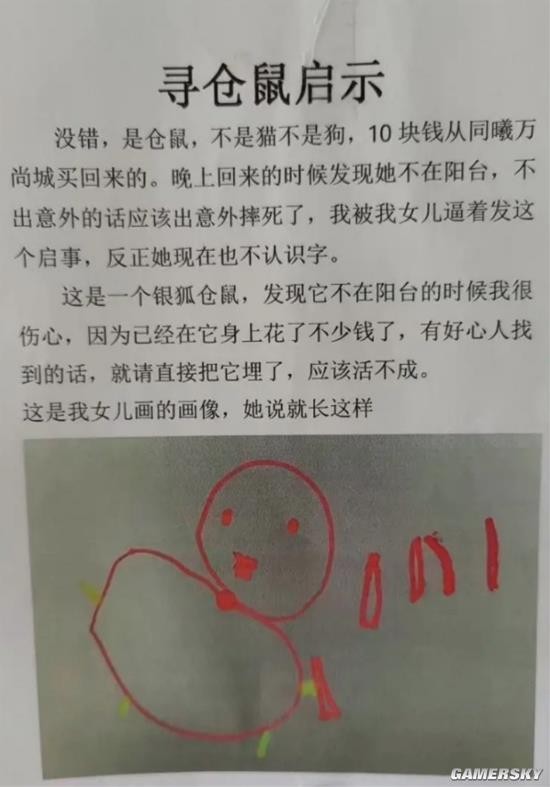 寻仓鼠启示
没错，是仓鼠，不是猫不是狗，10 块钱从同曦万
尚城买回来的。晚上回来的时候发现她不在阳台，不
出意外的话应该出意外摔死了，我被我女儿逼着发这
个启事，反正她现在也不认识字。
这是一个银狐仓鼠，发现它不在阳台的时候我很
伤心，因为已经在它身上花了不少钱了，有好心人找
到的话，就请直接把它埋了，应该活不成。
这是我女儿画的画像，她说就长这样
GAMERSKY